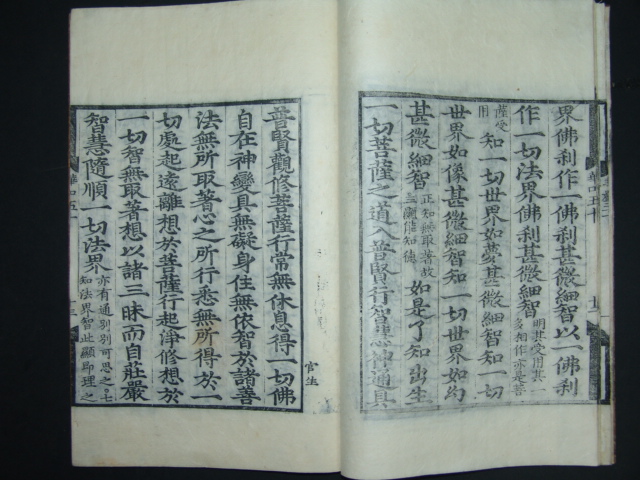 界佛刹作一佛刹甚微細智以一佛刹
作一切法界佛刹甚微細智
知一切世界如夢甚微細智知一切
世界如像甚微細智知一切世界如幻
甚微細智
正知無取著故
如是了知出生
一切菩薩之道入普賢行智慧神通具
普賢觀修菩薩行常無休息得一切佛
自在神變具無礙身住無依智於諸善
法無所取著心之所行悉無所得於一
切處起遠離想於菩薩行起淨修想於
一切智無取著想以諸三昧而自莊嚴
智慧隨順一切法界
亦有通別別可思之七
知法界智此顯即理之